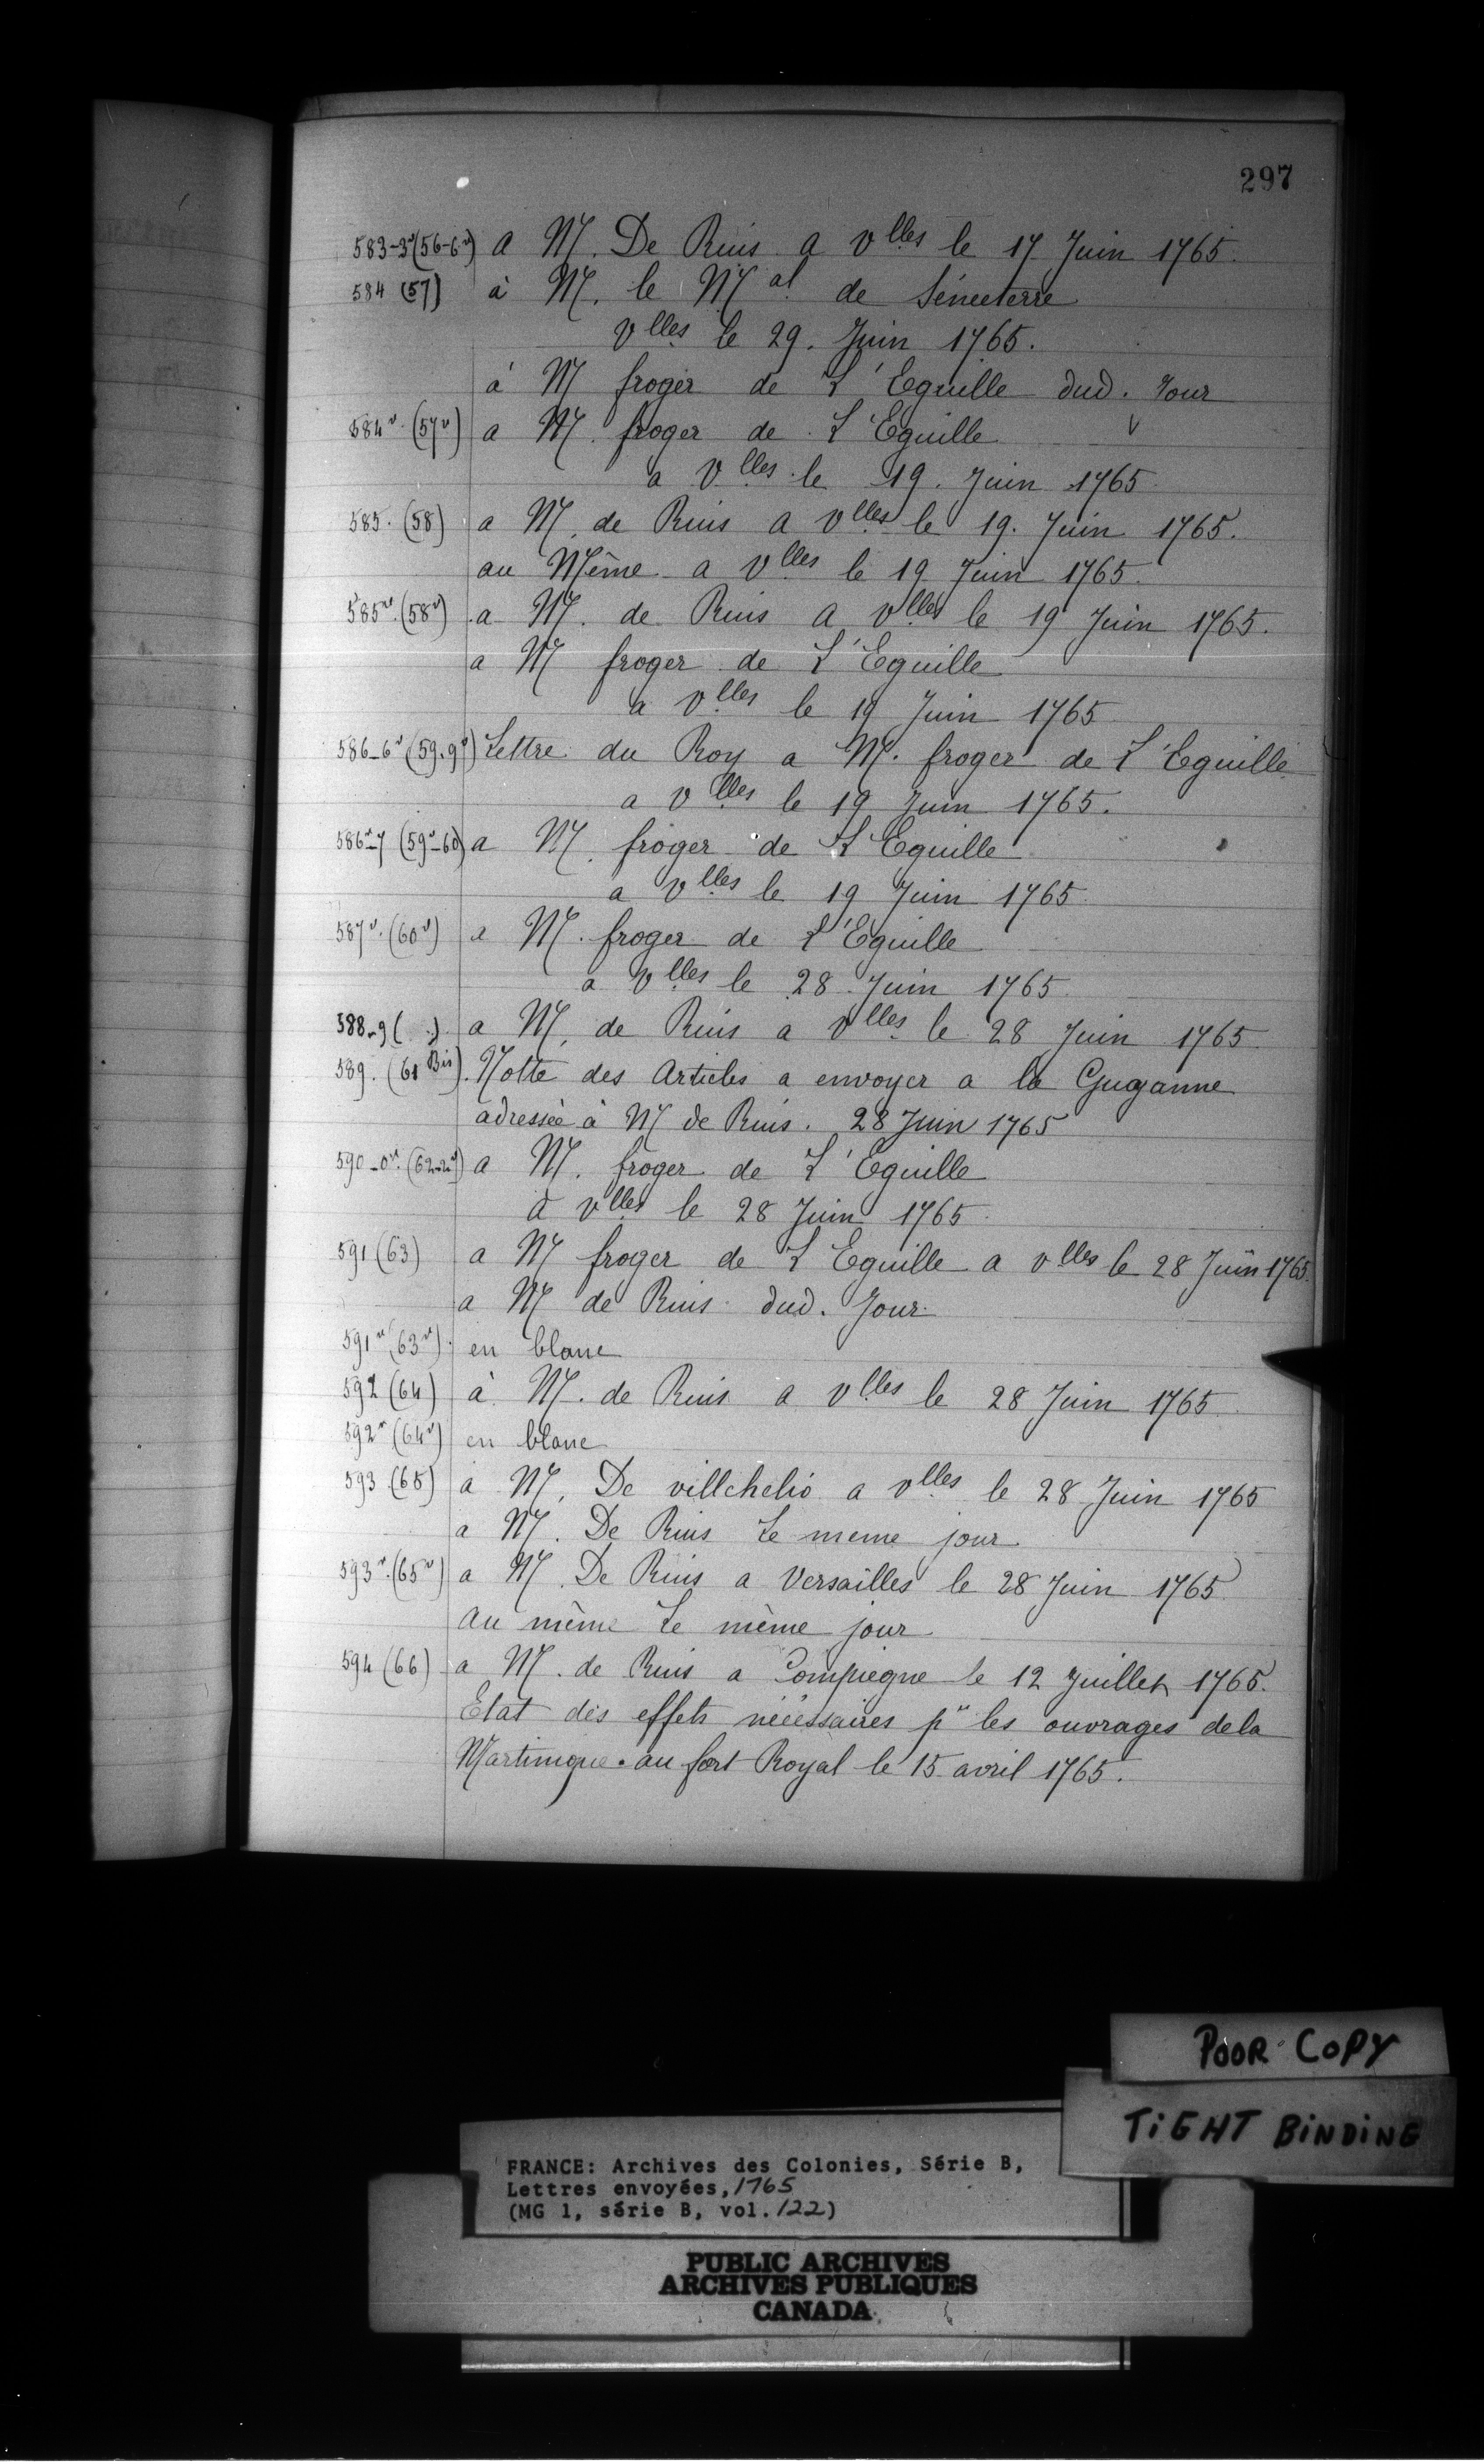 297
583-3v (56-6v) a M. De Ruis a vlles le 17 Juin 1765.
584 (57) à M. le Mal de Sénecterre
vlles le 29. Juin 1765.
à M froger de L'Eguille dud. Jour
584v. (57v) a M. froger de L'Eguille
a vlles le 19. Juin 1765.
585. (58) a M. de Ruis a vlles le 19. Juin 1765.
au Même a vlles le 19 Juin 1765.
585v. (58v) a M. de Ruis a vlles le 19 Juin 1765.
a M froger de L'Eguille
a vlles le 19 Juin 1765
586-6v (59.9v) Lettre du Roy a M. froger de L'Eguille
a vlles le 19 Juin 1765.
586v-7 (59v-60) a M. froger de L'Eguille
a vlles le 19 Juin 1765.
587v. (60v) a M. froger de L'Eguille
a vlles le 28 Juin 1765.
588-9 ( ) a M. de Ruis a vlles le 28 Juin 1765.
589. (61 Bis). Notte des Articles a envoyer a la Guyanne
adressée à M de Ruis. 28 Juin 1765
590-0v. (62-2v) a M. froger de L'Eguille
a vlles le 28 Juin 1765.
591 (63) a M froger de L Eguille a vlles le 28 Juin 1765.
a M de Ruis dud. Jour.
591v (63v). en blanc
592 (64) à M. de Ruis a vlles le 28 Juin 1765.
592v (64v) en blanc
593 (65) à M. De villehelio a vlles le 28 Juin 1765
a M. De Ruis Le meme jour
593v. (65v) a M. De Ruis a Versailles le 28 Juin 1765
au même Le même jour
594 (66) a M. de Ruis a Compiegne le 12 Juillet 1765.
Etat des effets nécéssaires pr les ouvrages de la
Martinique. au fort Royal le 15 avril 1765.
POOR COPY
TIGHT BINDING
FRANCE: Archives des Colonies, Série B,
Lettres envoyées, 1765
(MG 1, série B, vol. 122)
PUBLIC ARCHIVES
ARCHIVES PUBLIQUES
CANADA